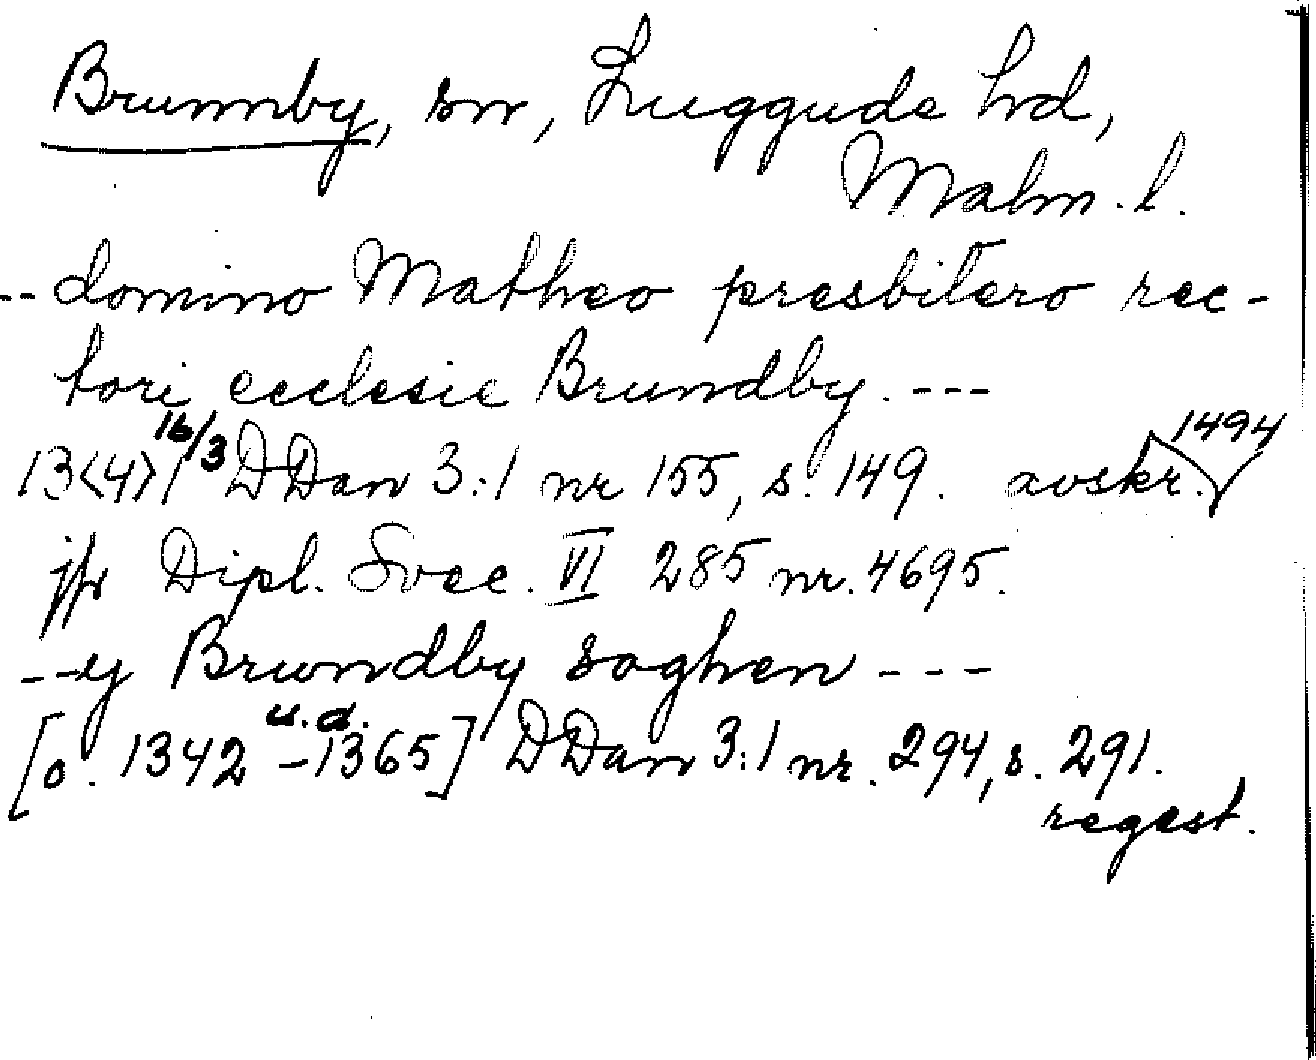 Brunnby, sn, Luggude hd,
Malm. l.
-- domino Matheo presbitero rec-
tori ecclesie Brundby. ---
13<4>1 16/3 DDan 3:1 nr 155, s. 149. avskr. 1494
jfr Dipl. Svec. VI 285 nr. 4695.
--y Brundby soghen ---
[o. 1342 -1365] u.d. DDan 3:1 nr. 294, s. 291.
regest.